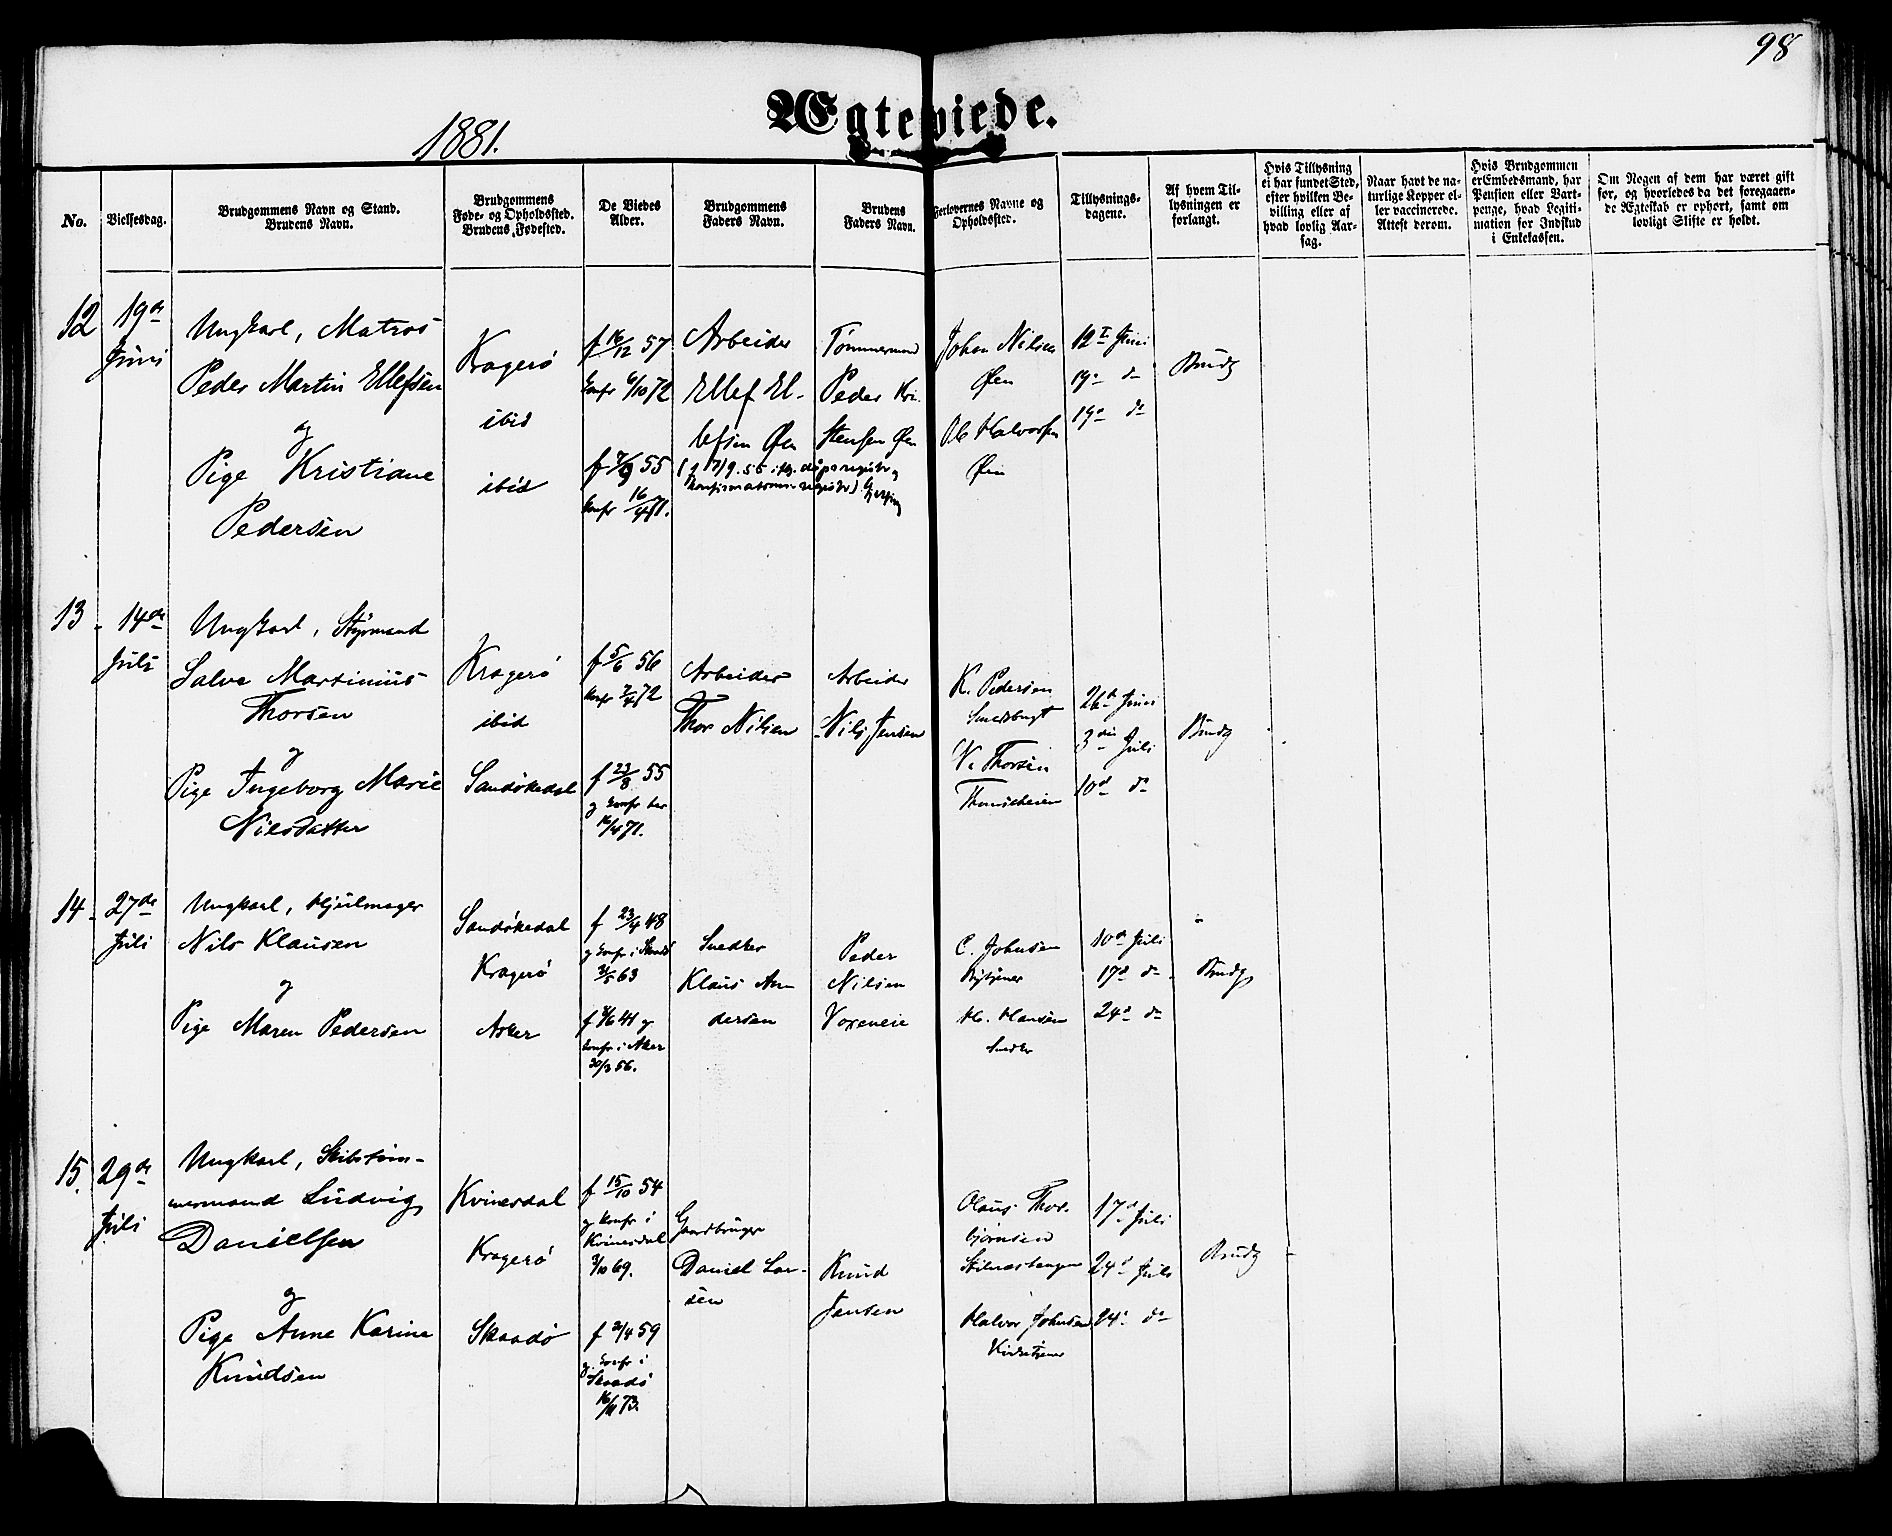 98
Ægteviede.
1881.
No.
Vielsesdag.
Brudgommens Navn og Stand.
Brudens Navn.
Brudgommens
Føde- og Opholdssted.
Brudens Fødested.
De Viedes
Alder.
Brudgommens
Faders Navn.
Brudens
Faders Navn.
Forlovernes Navne og
Opholdssted.
Tillysnings-
dagene.
Af hvem Til-
lysningen er
forlangt.
Hvis Tillysning
ei har fundet Sted,
efter hvilken Be-
villing eller af
hvad lovlig Aar-
sag.
Naar havt de na-
turlige Kopper el-
ler vaccinerede.
Attest derom.
Hvis Brudgommen
er Embedsmand, har
Pension eller Vart-
penge, hvad Legiti-
mation for Indskud
i Enkekassen.
Om Nogen af dem har været gift
før, og hvorledes da det foregaaen-
de Ægteskab er ophørt, samt om
lovligt Skifte er holdt.
12
19de
Juni
Ungkarl, Matros
Peder Martin Ellefsen
og
Pige Kristiane
Pedersen
Kragerø
ibid
ibid
f 16/12 57
konf 6/10 72
f 7/9 55
konf 16/4 71.
Arbeider
Ellef El-
lefsen Øen
Tømmermand
Peder Kri-
stensen Øen
Johan Nilsen
Øen
Ole Halvorsen
Øen
12te Juni
19de do
19de do
Brudg
13
14de
Juli
Ungkarl, Styrmand
Salve Martinius
Thorsen
og
Pige Ingeborg Marie
Nilsdatter
Kragerø
ibid
Sandøkedal
f 5/6 56
konf 7/4 72
f 23/8 55
og konf her
16/4 71.
Arbeider
Thor Nilsen
Arbeider
Nils Jensen
K. Pedersen
Smedsbugt
N. Thorsen
26de Juni
3die Juli
10de do
Brudg
14
27de
Juli
Ungkarl, Hjulmager
Nils Klausen
og
Pige Maren Pedersen
Sandøkedal
Kragerø
Asker
f 23/4 48
og konf i
3/5 63
f 4/6 41 og
konf i Aker
30/3 56.
Snedker
Klaus An-
dersen
Peder
Nilsen
C. Johnsen
Bytjener
H. Hansen
Snedker
10de Juli
17de do
24de do
Brudg
15.
29de
Juli
Ungkarl, Skibstøm-
mermand Ludvig
Danielsen
og
Pige Anne Karine
Knudsen
Kvinesdal
Kragerø
Skaadø
f 15/10 54
og konf i
Kvinesdal
3/10 69.
f 2/4 59
og konf i
Skaadø
16/11 73.
Gaardbruger
Daniel Lar-
sen
Knud
Jensen
Olaus Thor-
bjørnsen
Halvor Johnsen
Kirketjener
17de Juli
24de Juli
24de do
Brudg